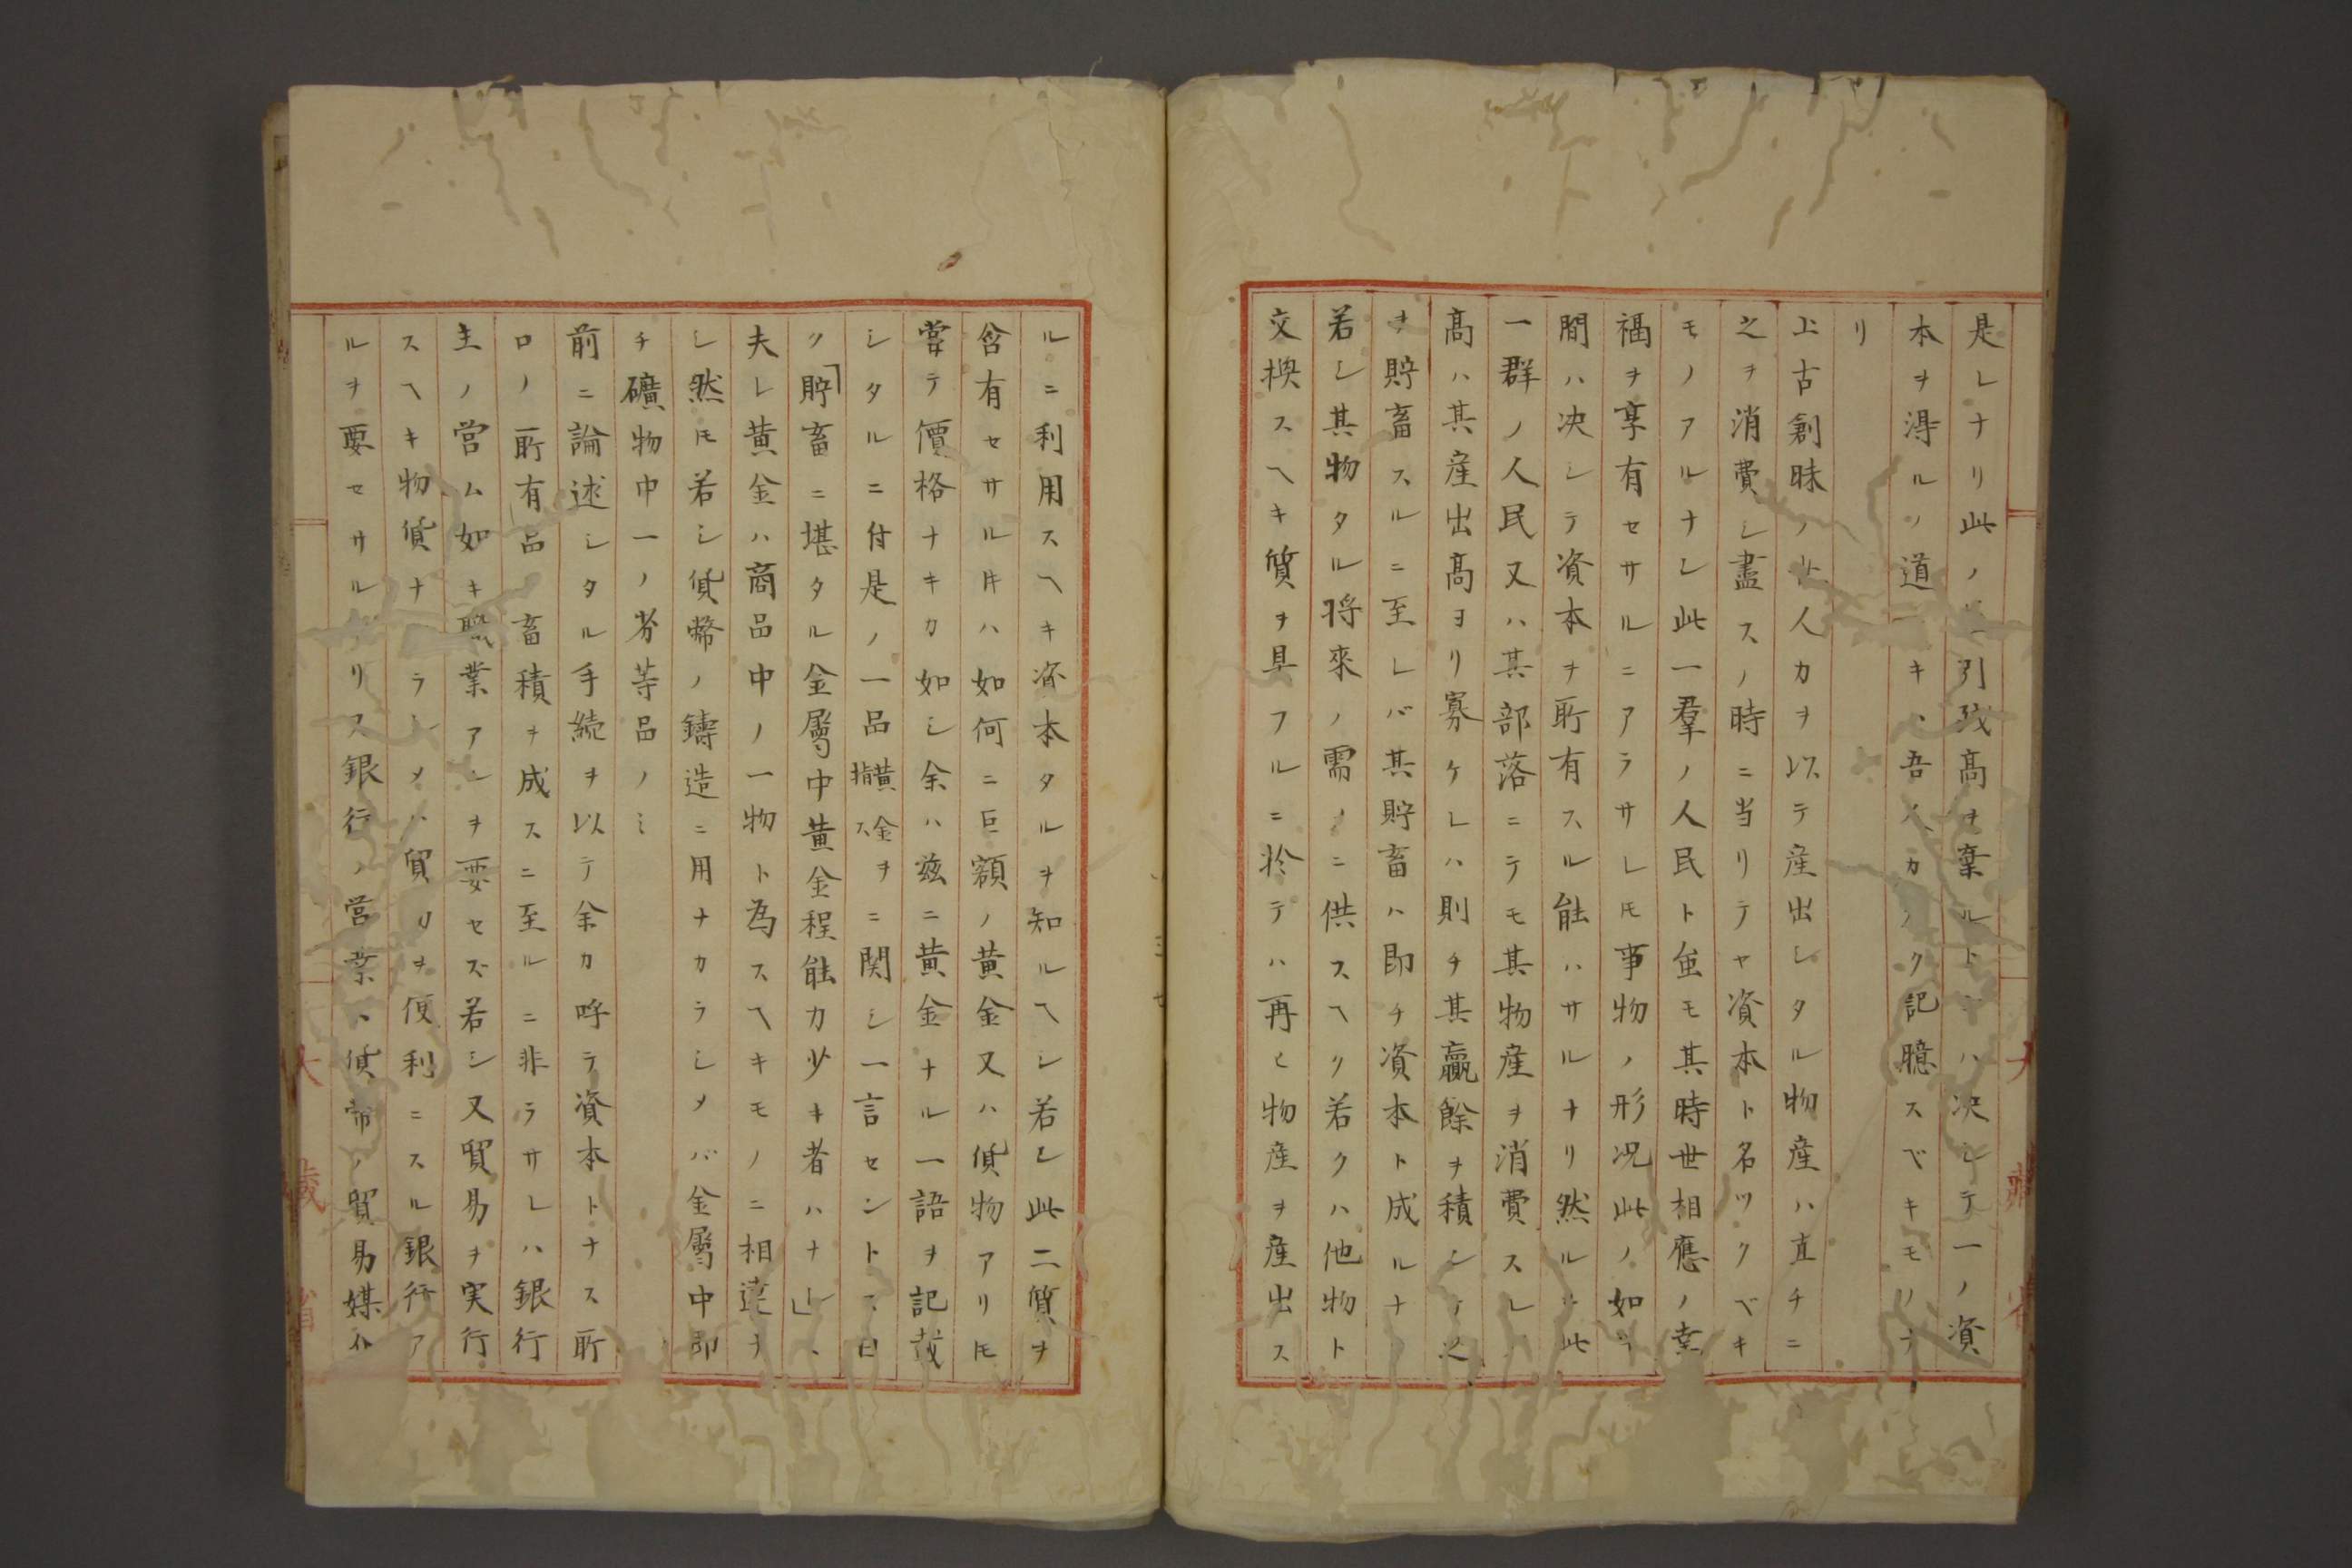 是レナリ此ノ引残高ヲ棄ルトハ决シテ一ノ資
本ヲ得ルノ道ナキハ吾人カ々ク記臆スベキモノナ
リ
上古創昧ノ人カヲ以テ産出シタル物産ハ直チニ
之ヲ消費シ盡スノ時ニ当リテヤ資本ト名ツクベキ
モノアルナシ此一羣ノ人民ト雖モ其時世相應ノ幸
福ヲ享有セサルニアラサレ𪜈事物ノ形况此ノ如キ
間ハ决シテ資本ヲ所有スル能ハサルナリ然ルニ此
一群ノ人民又ハ其部落ニテモ其物産ヲ消費スル
高ハ其産出高ヨリ寡ケレハ則チ其贏餘ヲ積シテ之
ヲ貯畜スルニ至レバ其貯畜ハ即チ資本ト成ルナリ
若シ其物タル将來ノ需ノニ供スヘク若クハ他物ト
交換スヘキ質ヲ具フルニ於テハ再ヒ物産ヲ産出ス
ルニ利用スヘキ資本タルヲ知ルヘシ若シ此二質ヲ
含有セサル片ハ如何ニ巨額ノ黄金又ハ貨物アリ𪜈
嘗テ價格ナキカ如シ余ハ茲ニ黄金ナル一語ヲ記載
シタルニ付是ノ一品黄金ヲ指スニ関シ一言セントス曰
ク「貯畜ニ堪タル金屬中黄金程能力少キ者ハナシ」
夫レ黄金ハ商品中ノ一物ト為スヘキモノニ相違ナ
シ然𪜈若シ貨幣ノ鑄造ニ用ナカラシメバ金屬中即
チ礦物中一ノ劣等品ノミ
前ニ論述シタル手続ヲ以テ余カ呼テ資本トナス所
ロノ所有品畜積ヲ成スニ至ルニ非ラサレハ銀行
主ノ営ム如キ職業アルヲ要セズ若シ又貿易ヲ実行
スヘキ物貨ナカラシメハ貿易ヲ便利ニスル銀行ア
ルヲ要セサルナリス銀行ノ営業ハ貨幣ノ貿易媒介
大藏省
大藏省